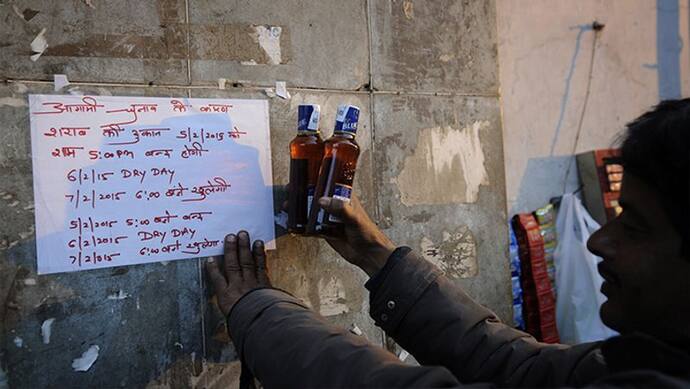 आगामी चुनाव के कारण
शराब की दुकान 5/2/2015 को
शाम 5:00PM बन्द होगी
6/2/15 DRY DAY
7/2/2015 6:00 बजे खुलेगी
5/2/2015 5:00 बजे बन्द
6/2/2015 DRY DAY
7/2/2015 6:00 बजे खुलेगा